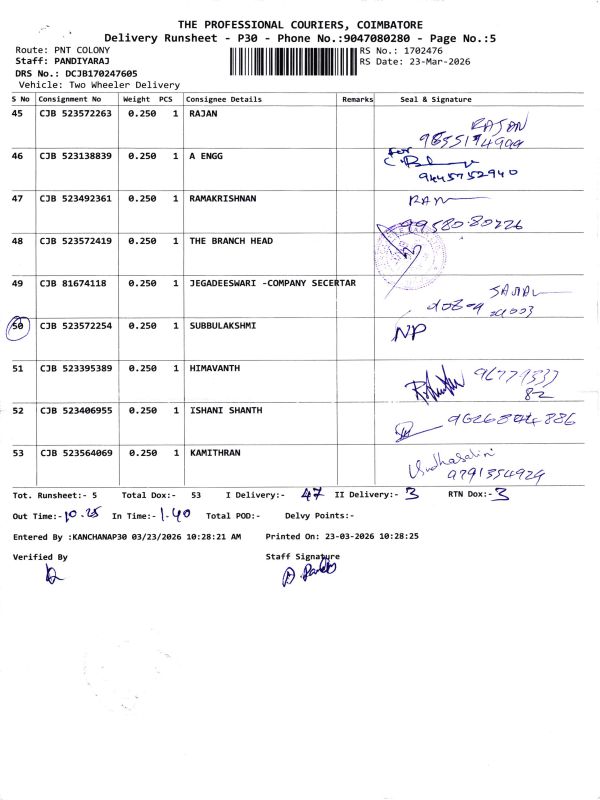 THE PROFESSIONAL COURIERS, COIMBATORE
Delivery Runsheet - P30 - Phone No.:9047080280 - Page No.:5
Route: PNT COLONY
RS No.: 1702476
Staff: PANDIYARAJ
RS Date: 23-Mar-2026
DRS No.: DCJB170247605
Vehicle: Two Wheeler Delivery
S No Consignment No Weight PCS Consignee Details Remarks Seal & Signature
45 CJB 523572263 0.250 1 RAJAN RAJAN
46 CJB 523138839 0.250 1 A ENGG For
9445752940
47 CJB 523492361 0.250 1 RAMAKRISHNAN RAM
99580 80226
48 CJB 523572419 0.250 1 THE BRANCH HEAD
49 CJB 81674118 0.250 1 JEGADEESWARI -COMPANY SECERTAR
50 CJB 523572254 0.250 1 SUBBULAKSHMI NP
51 CJB 523395389 0.250 1 HIMAVANTH 96779337
82
52 CJB 523406955 0.250 1 ISHANI SHANTH
53 CJB 523564069 0.250 1 KAMITHRAN
9791354929
Tot. Runsheet:- 5 Total Dox:- 53 I Delivery:- 47 II Delivery:- 3 RTN Dox:- 3
Out Time:- 10.25 In Time:- 1.40 Total POD:- Delvy Points:-
Entered By :KANCHANAP30 03/23/2026 10:28:21 AM Printed On: 23-03-2026 10:28:25
Verified By Staff Signature